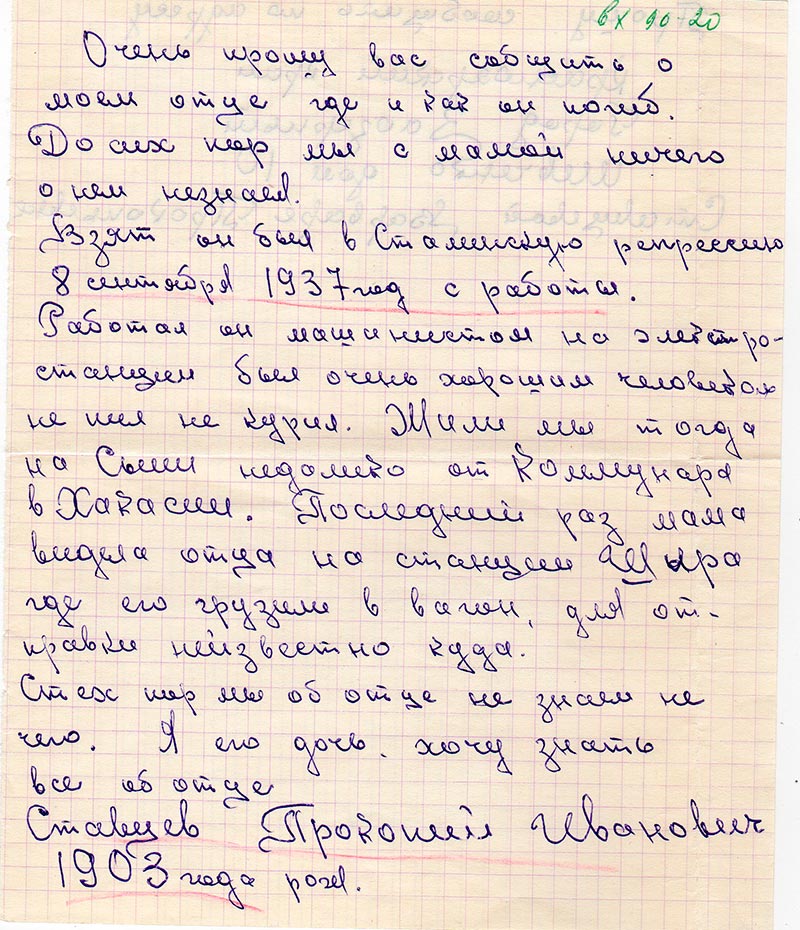 вх 90 20
Очень прошу вас собщить о
моем отце где и как он погиб.
До сих пор мы с мамой ничего
о нем незнаем.
Взят он был в Сталинскую репрессию
8 сентября 1937 год с работы.
Работал он машинистом на электро-
станции был очень хорошим человеком
не пил не курил. Жили мы тогда
на Сыии недалеко от Коммунара
в Хакасии. Последний раз мама
видела отца на станции Шыра
где его грузили в вагон, для от-
правки неизвестно куда.
Стех пор мы об отце не знаем не
чего. Я его дочь. хочу знать
все об отце
Ставцев Прокопий Иванович
1903 года рож.